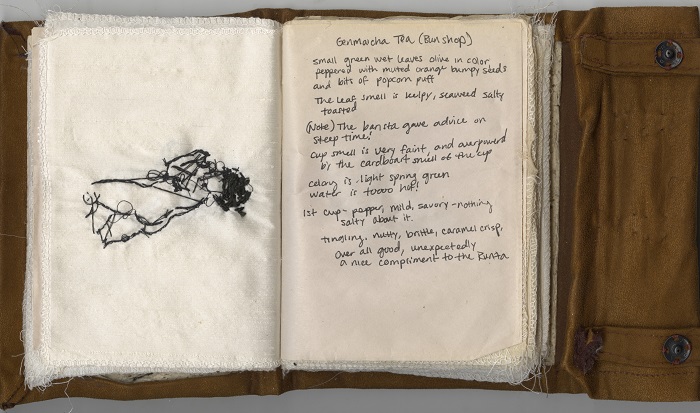 Genmaicha Tea (Bun shop)
small green wet leaves olive in color
peppered with muted orange bumpy seeds
and bits of popcorn puff
The leaf smell is kelpy, seaweed salty
toasted
(Note) The barista gave advice on
steep time!
cup smell is very faint, and overpowerd
by the cardboart smell of the cup
coloring is light spring green
water is toooo hot!
1st cup - pepper, mild, savory - nothing
salty about it.
tingling. nutty, brittle, caramel crisp,
over all good, unexpectedly
a nice compliment to the Runza